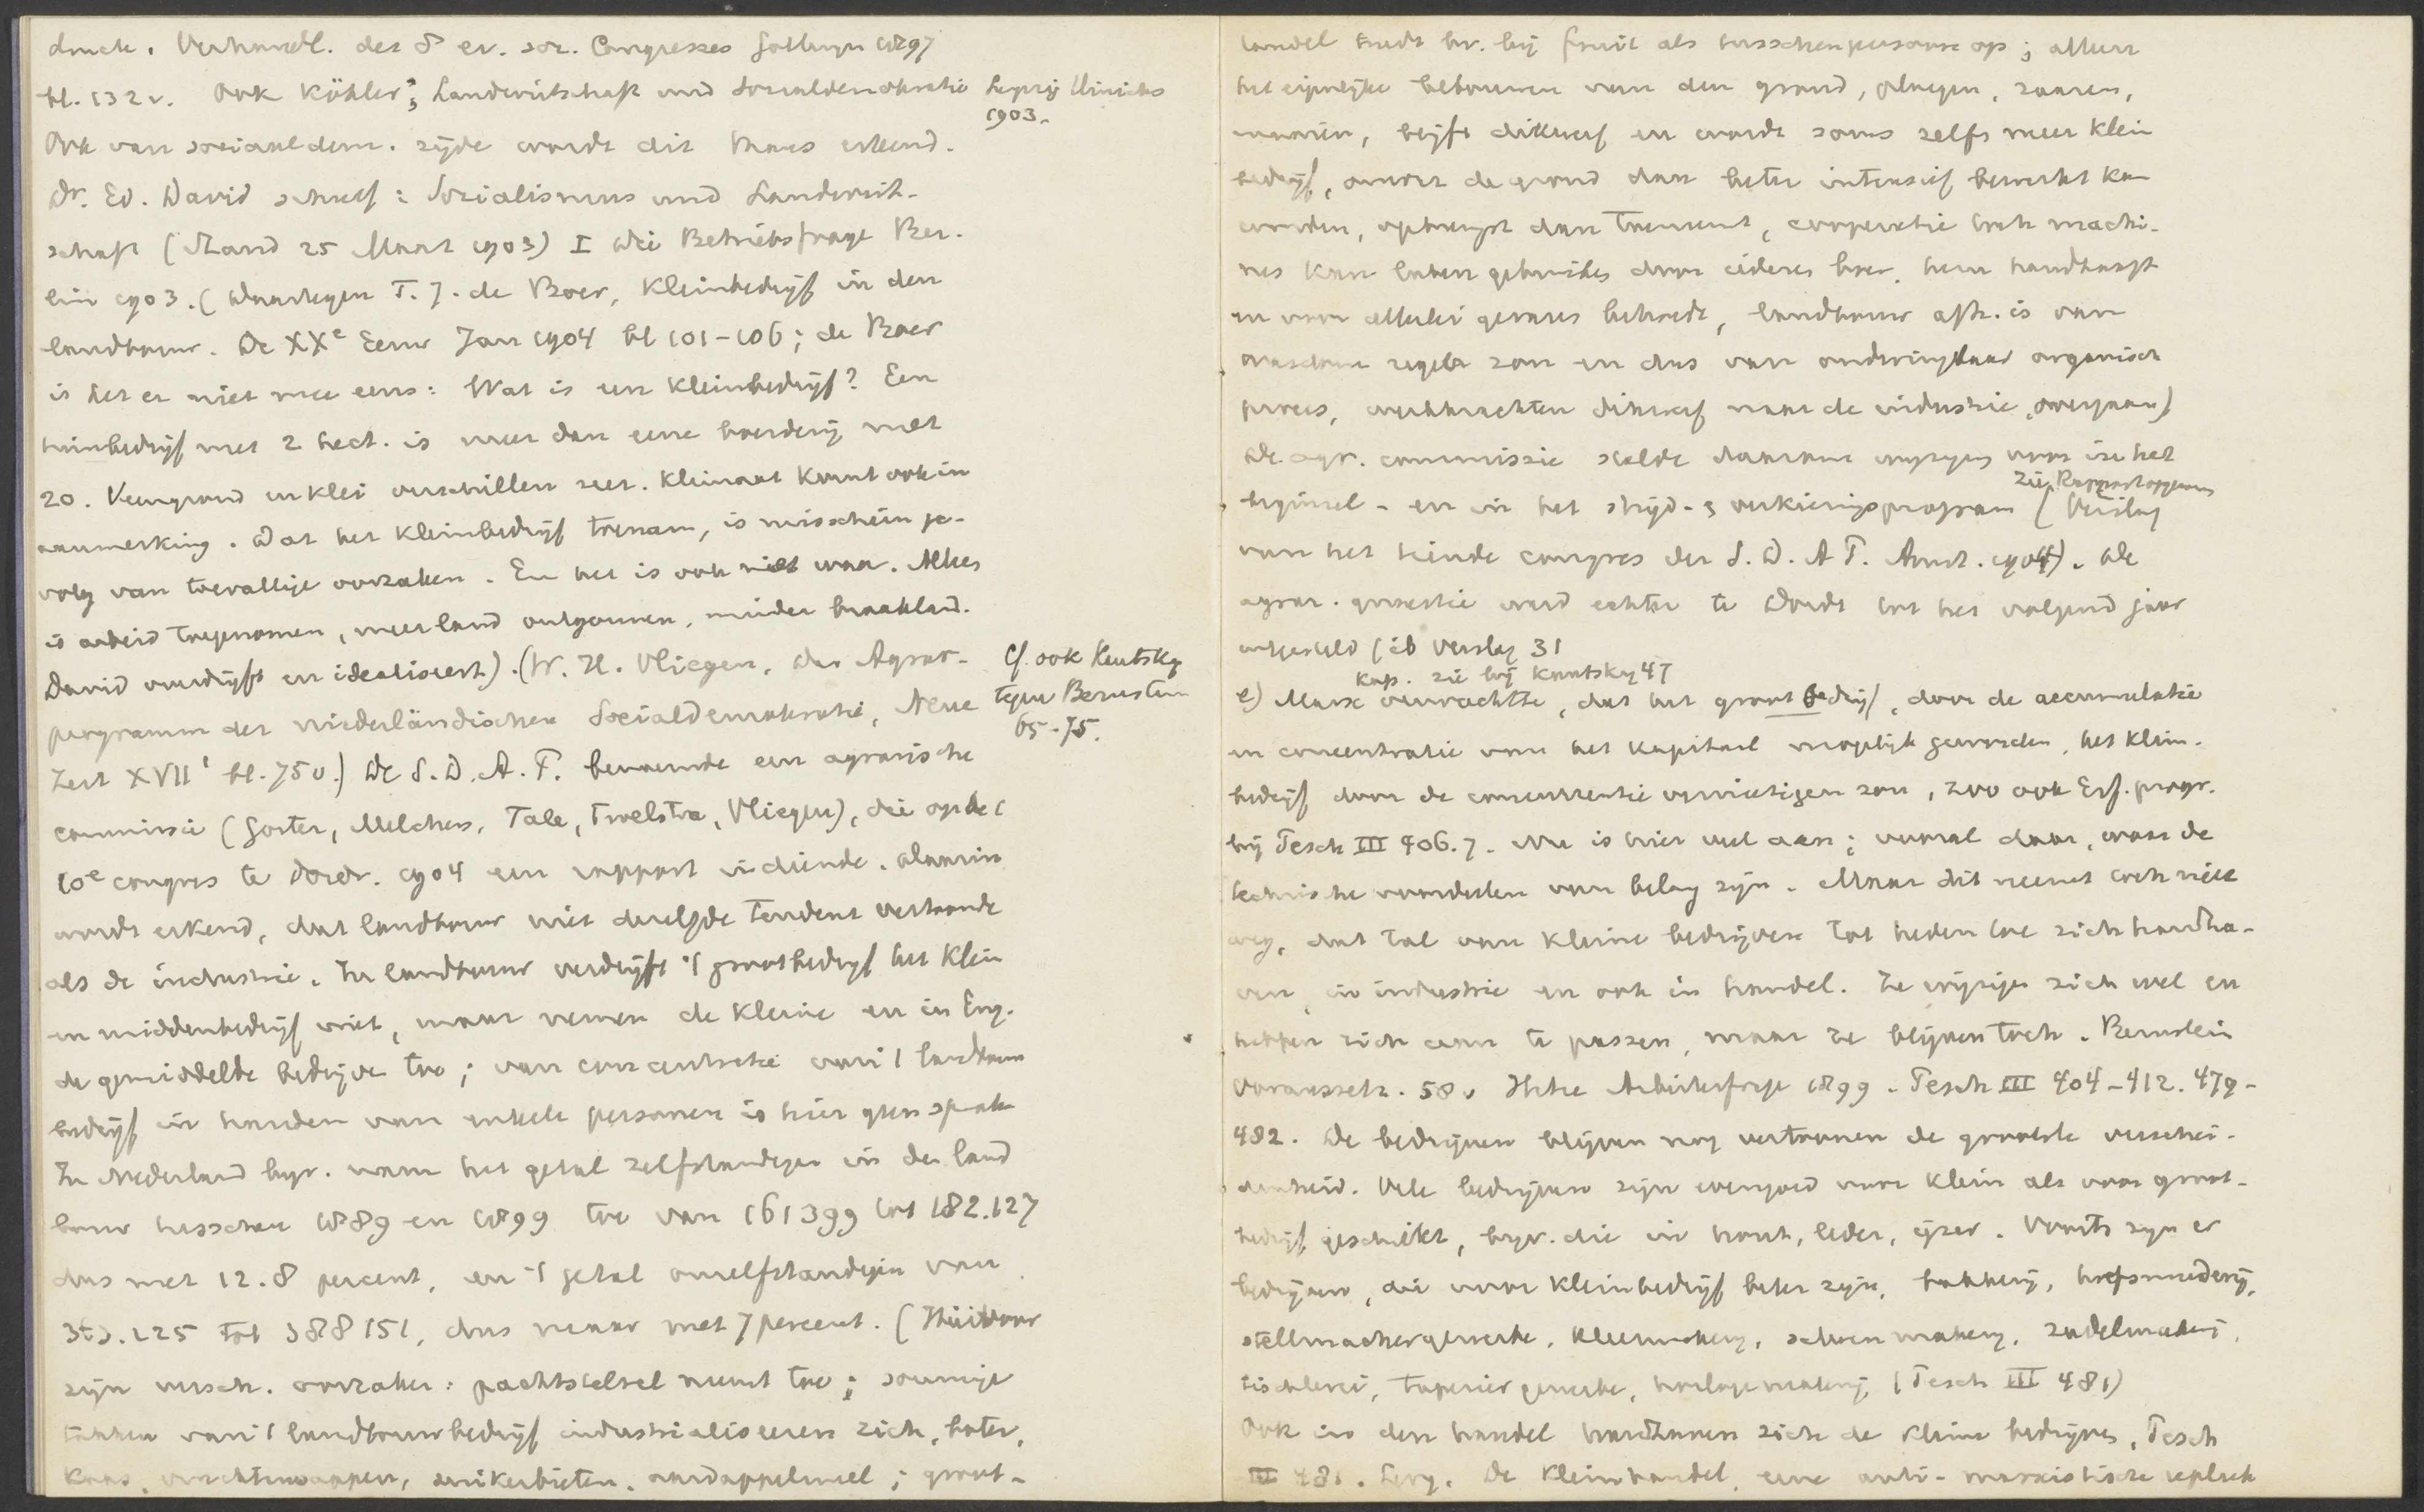 druck. Verhandl. des 8 ev. soz. Congresses Gottingen 1897
bl. 132 v. Ook Köhler, Landwirtschaft und Sozialdemokratie Leipzig Hinrichs
1903.
Ook van sociaaldem. zijde wordt dit thans erkend.
Dr. Ed. David schreef: Sozialismus und Landwirt-
schaft (Stand 25 Maart 1903) I Die Betriebsfrage Ber-
lin 1903. (Daartegen T. J. de Boer, Kleinbedrijf in den
landbouw. De XXe Eeuw Jan 1904 bl 101-106; de Boer
is het er niet mee eens: Wat is een kleinbedrijf? Een
tuinbedrijf met 2 hect. is meer dan eene boerderij met
20. Veengrond en klei verschillen zeer. Klimaat komt ook in
aanmerking. Dat het kleinbedrijf toenam, is misschien ge-
volg van toevallige oorzaken. En het is ook niet waar. Alles
is arbeid toegenomen, meer land ontgonnen, minder braakland.
David overdrijft en idealiseert). (W. H. Vliegen, Das Agrar-
programm der niederländischen Socialdemokratie, Neue
Zeit XVII 1 bl. 75v.) De S.D.A.P. benoemde een agrarische
cf. ook Kautsky
tegen Bernstein
65-75.
commissie (Gorter, Melchers, Tak, Troelstra, Vliegen), die op de
10e congres te Dordr. 1904 een rapport indiende. Daarin
wordt erkend, dat landbouw niet dezelfde tendenz vertoonde
als de industrie. In landbouw verdrijft 't grootbedrijf het klein
en middenbedrijf niet, maar nemen de kleine en in Eng.
de gemiddelde bedrijven toe; van concentratie van 't landbouw
bedrijf in handen van enkele personen is hier geen sprake
In Nederland bijv. nam het getal zelfstandigen in den land
bouw tusschen 1889 en 1899 toe van 161399 tot 182.127
dus met 12.8 percent, en 't getal onzelfstandigen van
tot 388151, dus maar met 7 percent. (Hiervoor
zijn versch. oorzaken: pachtstelsel neemt toe; sommige
takken van 't landbouwbedrijf industrialiseeren zich, boter,
kaas, suikerbieten, aardappelmeel; groot-
handel treedt bv. bij fruit als tusschenpersoon op; alleen
het eigenlijke bebouwen van den grond, ploegen, zaaien,
maaien, blijft dikwerf en wordt soms zelfs meer klein
bedrijf, omdat de grond dan beter intensief bewerkt kan
worden, opbrengst dan toeneemt, cooperatie toch machi-
nes kan laten gebruiken door iederen boer, hem handkracht
en voor allerlei gevaren behoedt, landbouw afh. is van
regen zon en dus van onderling organisch
proces, werkkrachten dikwerf naar de industrie overgaan)
De agr. commissie stelde daarom wijziging voor in het
zie Rapport
beginsel- en in het strijd- & verkiezingsprogram (Verslag
van het tiende congres der S.D.A.P. Amst. 1904). De
agrar. quaestie werd echter te Dordt tot het volgend jaar
uitgesteld (ib verslag 31
kap. zie bij Kautsky 47
e) Marx verwachtte, dat het grootbedrijf, door de accumulatie
en concentratie van het kapitaal mogelijk geworden, het klein-
bedrijf door de concurrentie vernietigen zou, zoo ook Erf. progr.
bij Pesch III 406.7. Nu is hier veel aan; vooral daar, waar de
technische voordeelen van belang zijn. Maar dit neemt toch niet
weg, dat tal van kleine bedrijven tot heden toe zich handha-
ven in industrie en ook in handel. Ze wijzigen zich wel en
hebben zich aan te passen, maar ze blijven toch. Bernstein
Voraussetz. 58 v Hitze Arbeiterfrage 1899. Pesch III 404-412. 479-
482. De bedrijven blijven nog vertoonen de grootste verschei-
denheid. Vele bedrijven zijn evengoed voor klein als voor groot-
bedrijf geschikt, bijv. die in hout, leder, ijzer. Voorts zijn er
bedrijven, die voor kleinbedrijf beter zijn, bakkerij, hoefsmederij,
stellmachergewerbe, kleermakerij, schoenmakerij, zadelmakerij,
tischlerei, tapeziergewerbe, horlogemakerij (Pesch III 481)
Ook in den handel handhaven zich de kleine bedrijven, Pesch
III 481. Levy. De kleinhandel, eene anti-marxistische repliek